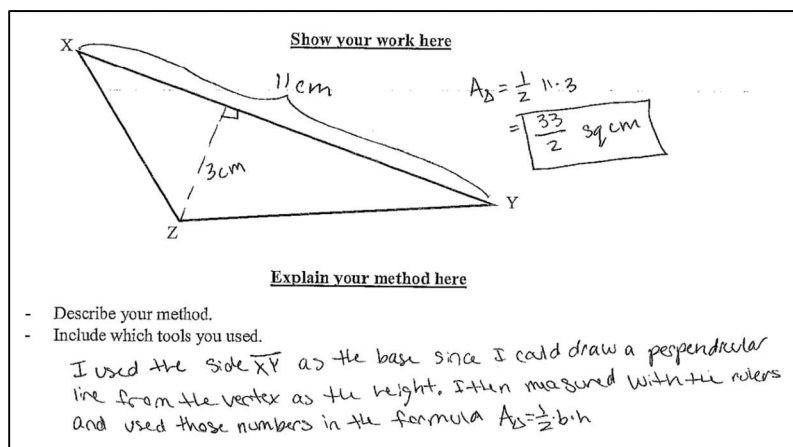 Show your work here
X
11cm
A△ = 1/2 11·3
= 33/2 sq cm
3cm
Y
Z
Explain your method here
- Describe your method.
- Include which tools you used.
I used the side XY as the base since I could draw a perpendicular
line from the vertex as the height. I then measured with the rulers
and used those numbers in the formula A△=1/2·b·h